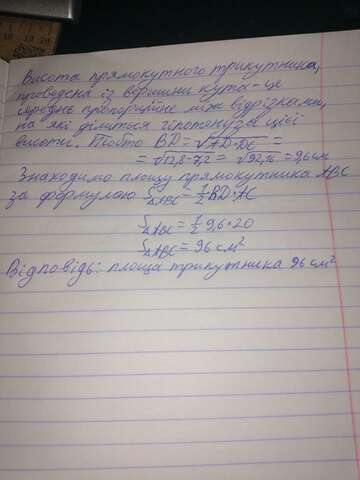 Висота прямокутного трикутника,
проведена із вершини кута - це
середнє пропорційне між відрізками,
на які ділиться гіпотенуза цієї
висоти. Тобто BD = √AD·DC =
= √12,8·7,2 = √92,16 = 9,6 см
Знаходимо площу прямокутника ABC
за формулаю S△ABC = 1/2 BD·AC
S△ABC = 1/2 9,6·20
S△ABC = 96 см²
Відповідь: площа трикутника 96 см²